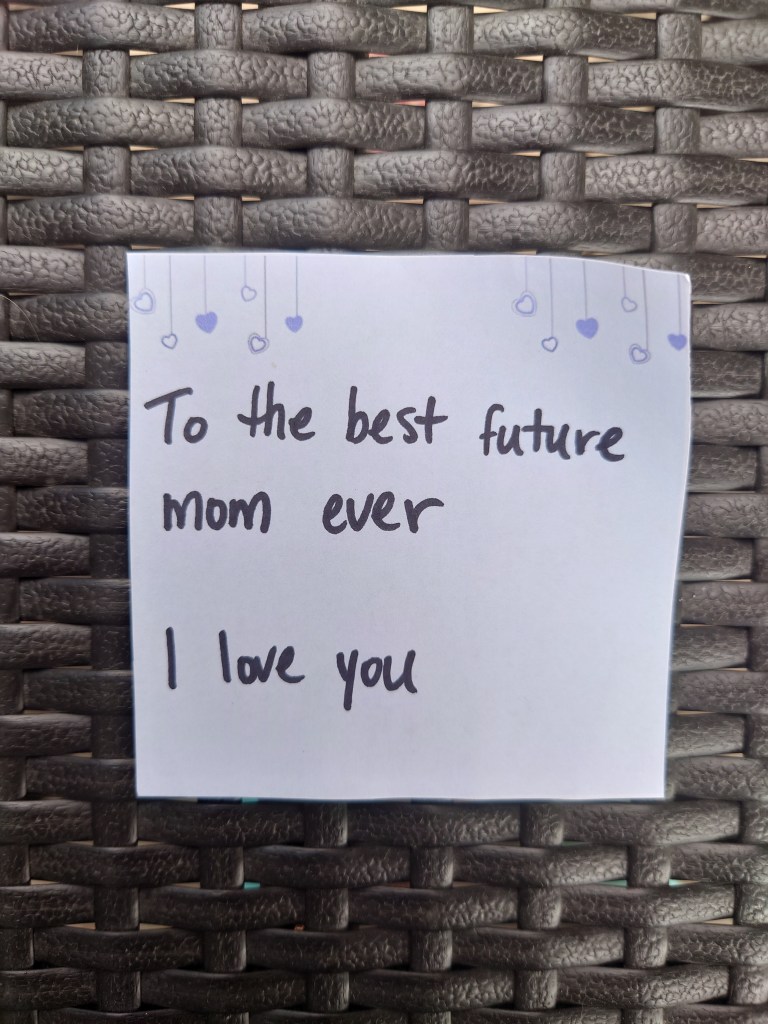 To the best future
mom ever
I love you